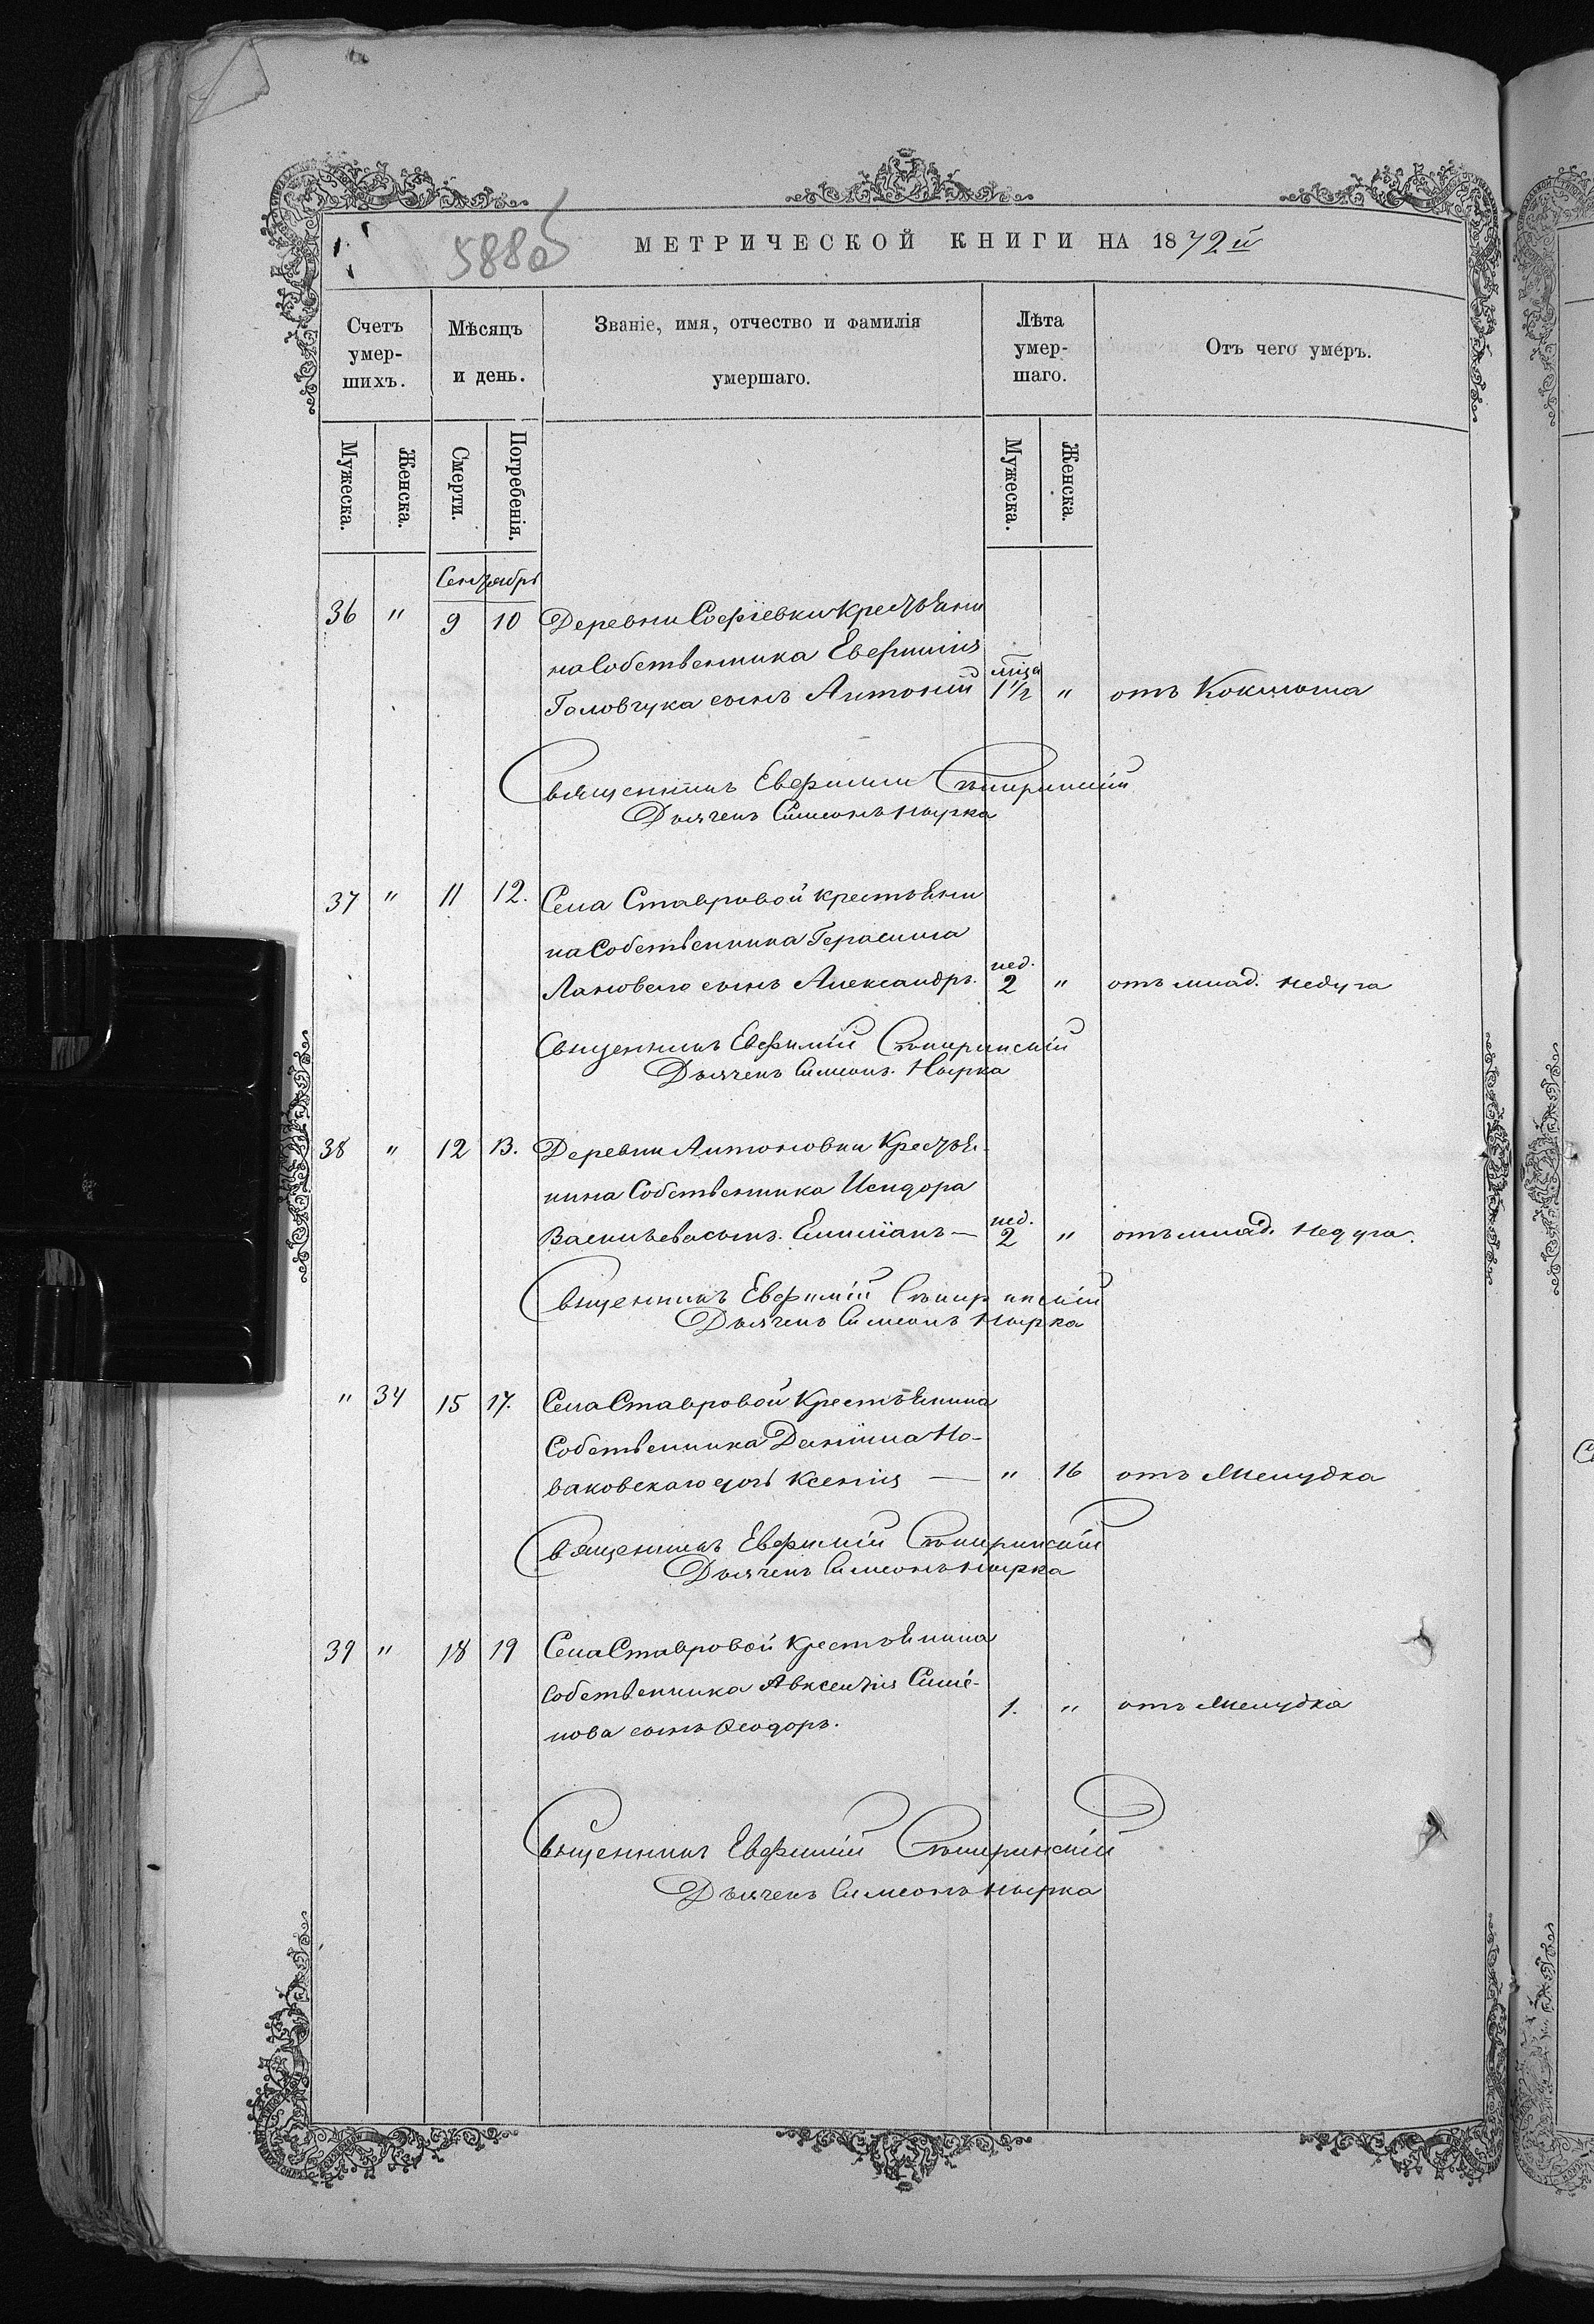 588об
МЕТРИЧЕСКОЙ КНИГИ НА 1872й
Счетъ умер-шихъ.
Мѣсяцъ и день.
Званіе, имя, отчество и фамилія умершаго.
Лѣта умер-шаго.
Отъ чего умеръ.
Мужеска.
Женска.
Смерти.
Погребенія.
Мужеска.
Женска.
Сентябрь
36 " 9 10 Деревни Софіевки крестьяни
на Собственника Евфимія
Головчука сынъ Антоній мца 1 1/2 " отъ Коклюша
Священникъ Евфимій
Дьячекъ Симеонъ Нырка
37 " 11 12. Села Ставровой крестьяни
на Собственника Герасима
Лановаго сынъ Александръ. нед. 2 " отъ млад. недуга
Священникъ Евфимій
Дьячекъ Симеонъ Нырка
38 " 12 13. Деревни Антоновки Крестья-
нина Собственника Исидора
Васильева сынъ Емиліанъ — нед. 2 " отъ млад. недуга.
Священникъ Евфимій
Дьячекъ Симеонъ Нырка
" 34 15 17. Села Ставровой Крестьянина
Собственника Даніила Но-
ваковскаго дочь Ксенія — " 16 отъ желудка
Священникъ Евфимій
Дьячекъ Симеонъ Нырка
39 " 18 19 Села Ставровой крестьянина
Собственника Авксентія Симе-
нова сынъ Ѳеодоръ. 1. " отъ желудка
Священникъ Евфимій
Дьячекъ Симеонъ Нырка